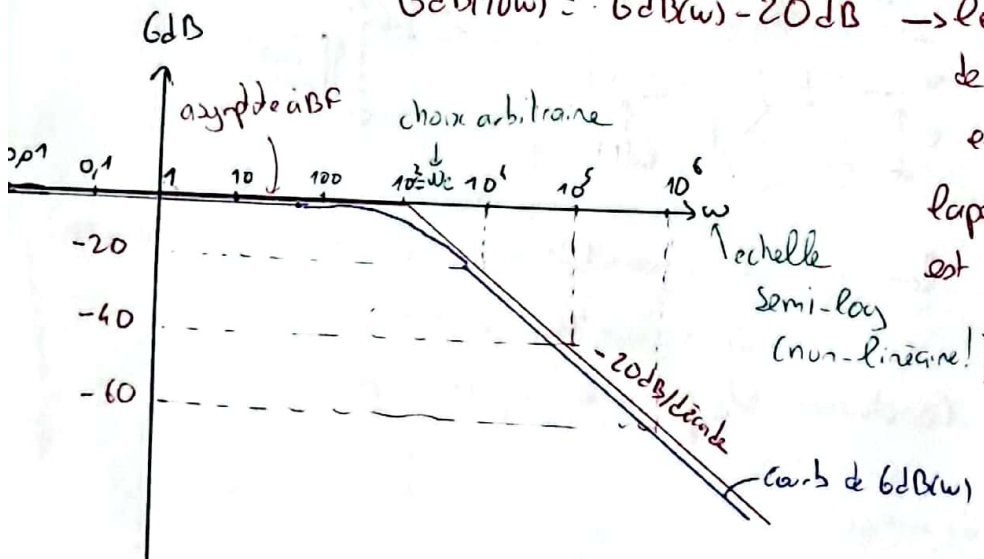 GdB(10w) = GdB(w) - 20dB →
GdB
de
asymptote à BF
choix arbitraire
↓
0,01 0,1 1 10 100 10³=wc 10⁴ 10⁵ 10⁶
→ w
-20
echelle
est
semi-log
-40
(non-linéaire!)
-60
-20dB/décade
courb de GdB(w)